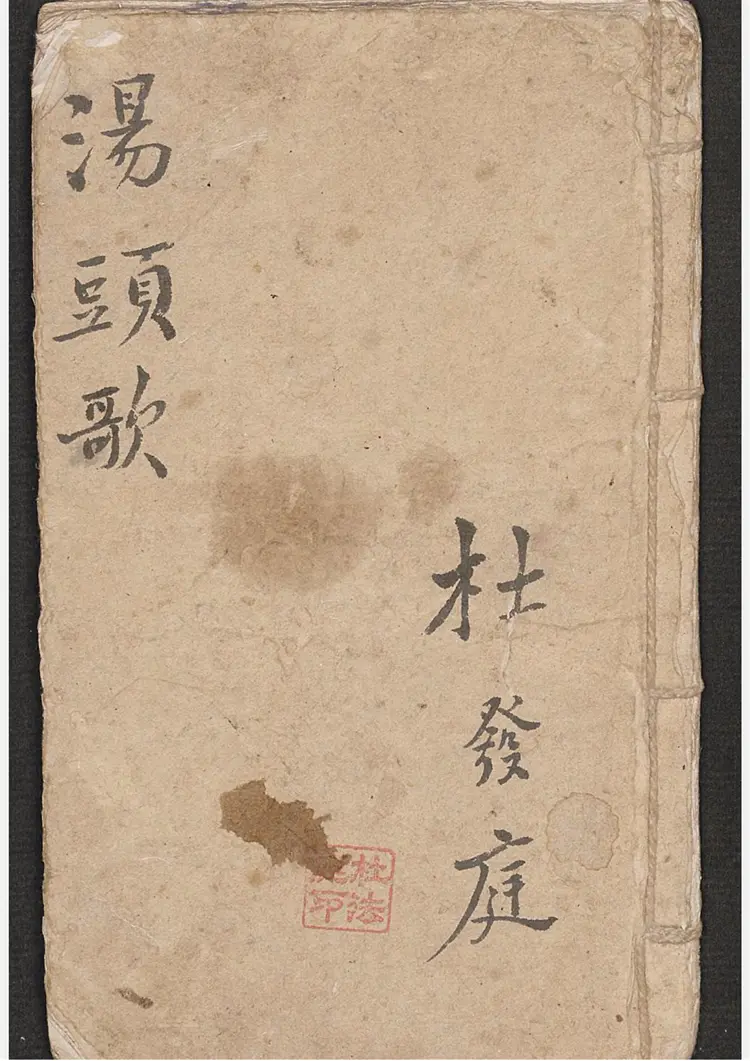 湯頭歌
杜發庭
杜法
印